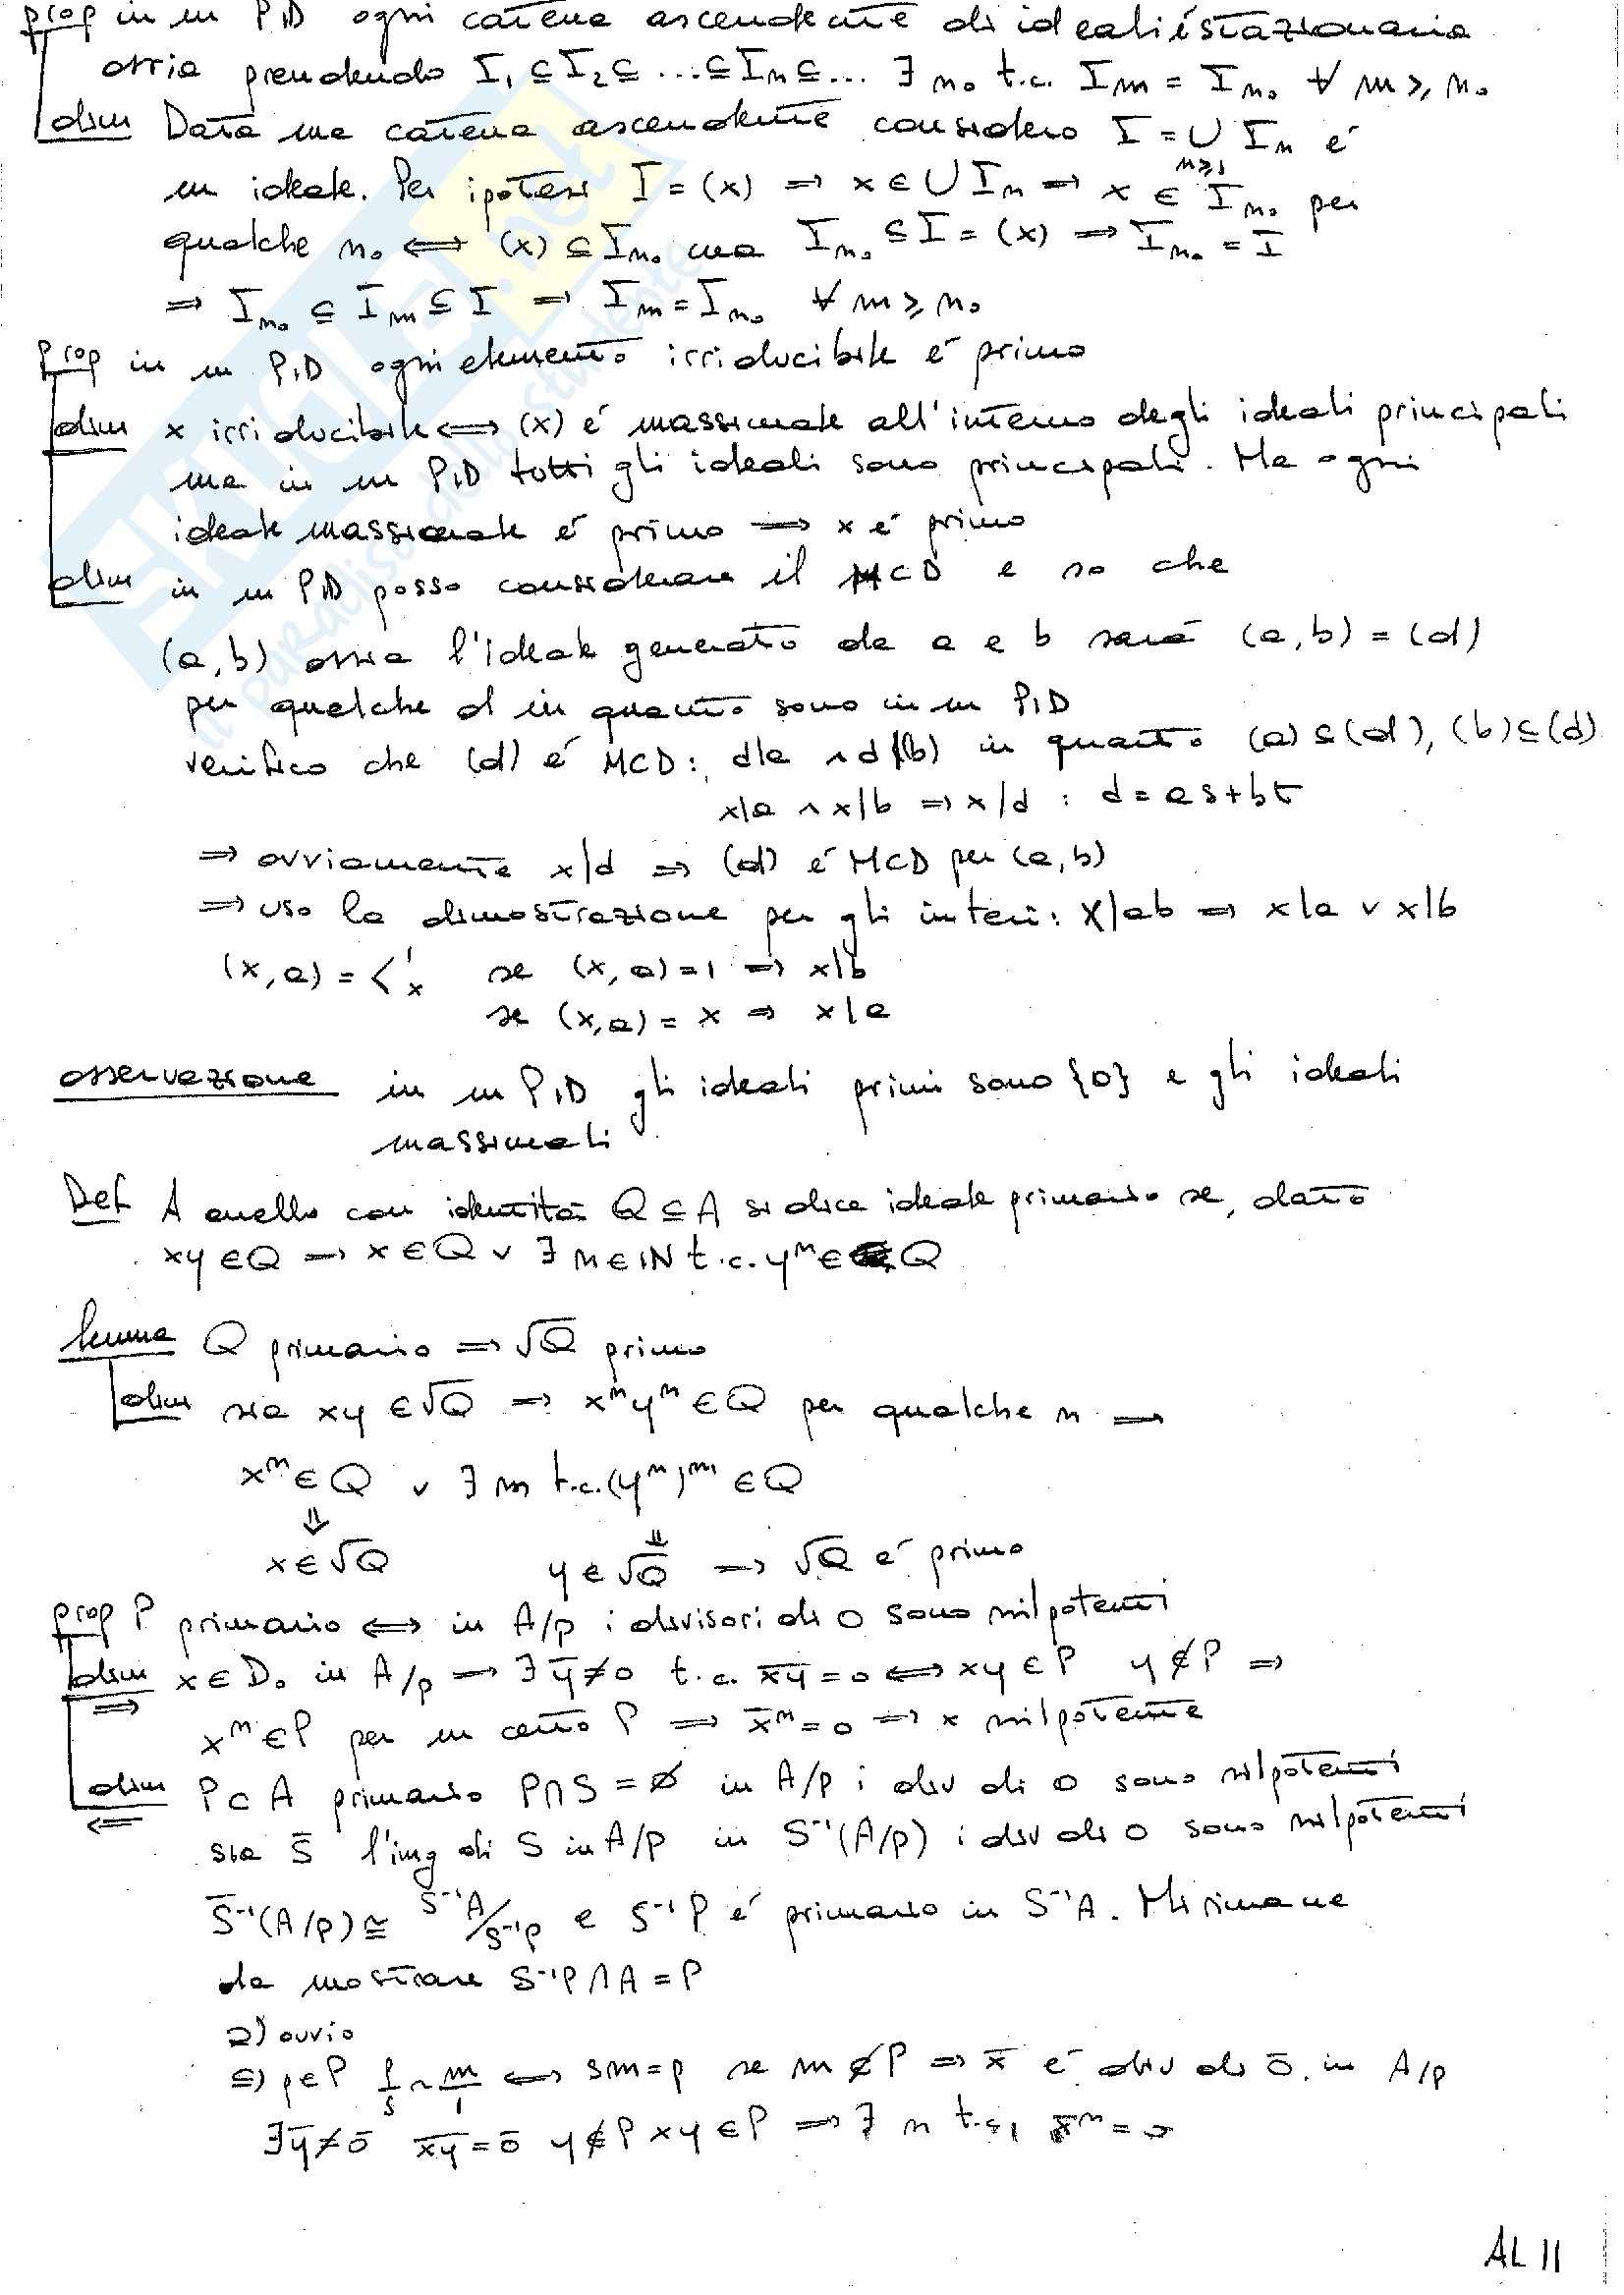 prop in un PID ogni catena ascendente di ideali é stazionaria
ossia prendendo I₁ ⊆ I₂ ⊆ ... ⊆ Iₙ ⊆ ... ∃ n₀ t.c. Iₘ = Iₙ₀ ∀ m ≥ n₀
dim Data una catena ascendente considero I = ∪ Iₙ é
n≥1
un ideale. Per ipotesi I = (x) ⇒ x ∈ ∪ Iₙ ⇒ x ∈ Iₙ₀ per
qualche n₀ ⇔ (x) ⊆ Iₙ₀ ma Iₙ₀ ⊆ I = (x) ⇒ Iₙ₀ = I
⇒ Iₙ₀ ⊆ Iₘ ⊆ I ⇒ Iₘ = Iₙ₀ ∀ m ≥ n₀
prop in un PID ogni elemento irriducibile é primo
dim x irriducibile ⇔ (x) é massimale all'interno degli ideali principali
ma in un PID tutti gli ideali sono principali. Ma ogni
ideale massimale é primo ⇒ x é primo
dim in un PID posso considerare il MCD e so che
(a,b) ossia l'ideale generato da a e b sará (a,b) = (d)
per qualche d in quanto sono in un PID
verifico che (d) é MCD: d|a ∧ d|(b) in quanto (a) ⊆ (d), (b) ⊆ (d)
x|a ∧ x|b ⇒ x|d : d = as+bt
⇒ ovviamente x|d ⇒ (d) é MCD per (a,b)
⇒ uso la dimostrazione per gli interi: x|ab ⇒ x|a ∨ x|b
(x,a) = < 1 x se (x,a)=1 ⇒ x|b
se (x,a) = x ⇒ x|a
osservazione in un PID gli ideali primi sono {0} e gli ideali
massimali
Def A anello con identitá Q ⊆ A si dice ideale primario se, dato
xy ∈ Q ⇒ x ∈ Q ∨ ∃ n ∈ ℕ t.c. yⁿ ∈ Q
lemma Q primario ⇒ √Q primo
dim sia xy ∈ √Q ⇒ xⁿyⁿ ∈ Q per qualche n ⇒
xⁿ ∈ Q ∨ ∃ m t.c. (yⁿ)ᵐ ∈ Q
⇓ ⇓
x ∈ √Q y ∈ √Q ⇒ √Q é primo
prop P primario ⇔ in A/p i divisori di 0 sono nilpotenti
dim ⇒ x ∈ D₀ in A/p ⇒ ∃ ȳ ≠ 0 t.c. x̄ȳ = 0 ⇔ xy ∈ P y ∉ P ⇒
xⁿ ∈ P per un certo P ⇒ x̄ⁿ = 0 ⇒ x nilpotente
dim ⇐ P ⊂ A primario P∩S = ∅ in A/p i div di 0 sono nilpotenti
sia S̄ l'img di S in A/p in S⁻¹(A/p) i div di 0 sono nilpotenti
S̄⁻¹(A/p) ≅ S⁻¹A/S⁻¹p e S⁻¹P é primario in S⁻¹A. Mi rimane
da mostrare S⁻¹P∩A = P
⊇) ovvio
⊆) p∈P p/s ~ m/1 ⇔ sm=p se m ∉ P ⇒ x̄ é div di 0̄ in A/p
∃ȳ≠0̄ x̄ȳ=0̄ y∉P xy∈P ⇒ ∃ n t.c. x̄ⁿ=0
AL 11